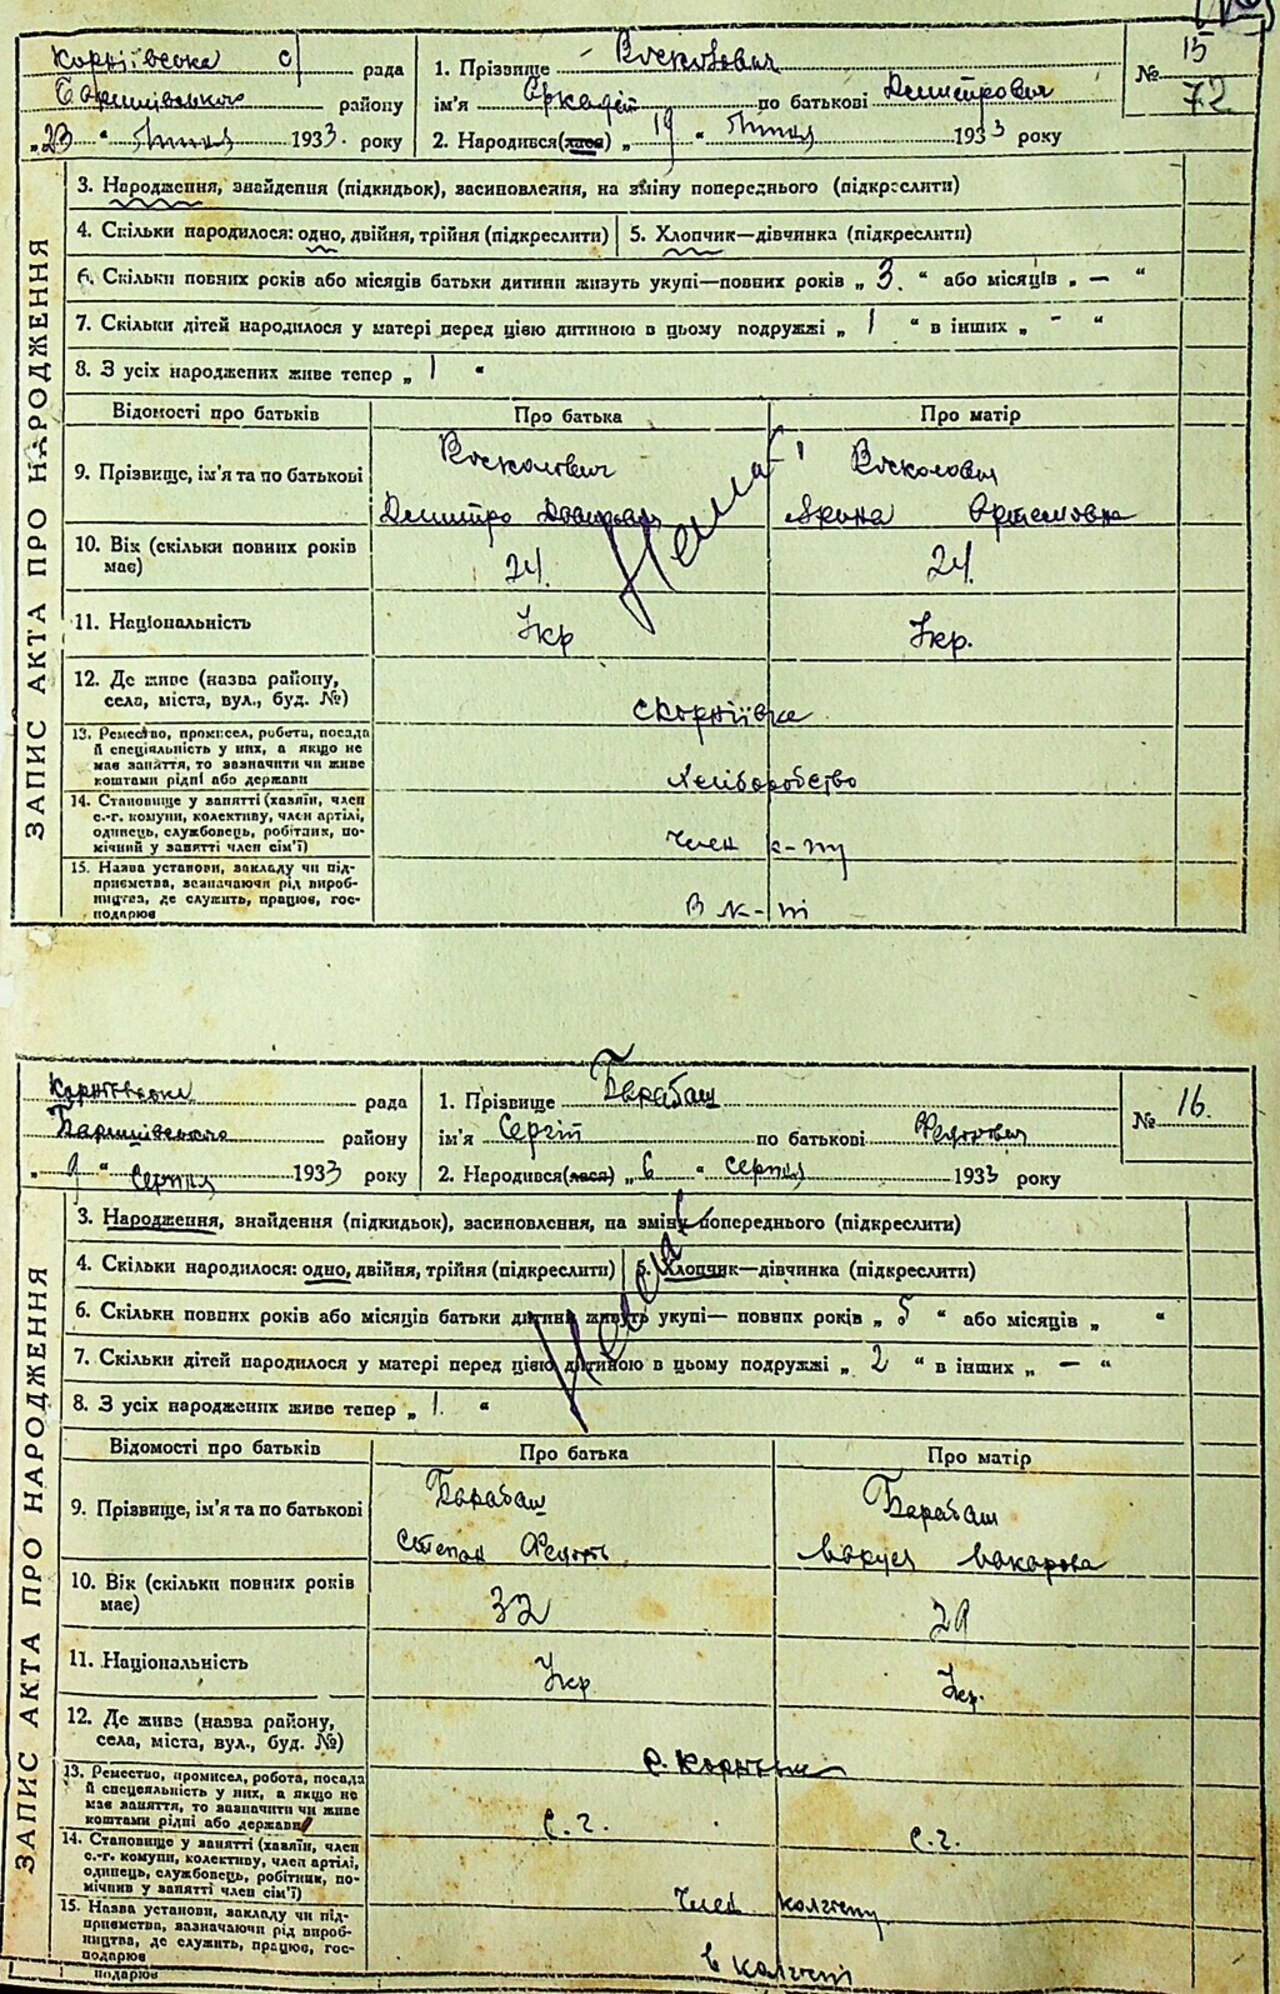 Корніївська с/ рада
Баришівського району
„23“ Липня 1933. року
1. Прізвище
ім'я Аркадій по батькові Дмитрович
2. Народився(лася) „19“ Липня 1933 року
№ 15
72
ЗАПИС АКТА ПРО НАРОДЖЕННЯ
3. Народження, знайдення (підкидьок), засиновлення, на зміну попереднього (підкреслити)
4. Скільки народилося: одно, двійня, трійня (підкреслити) 5. Хлопчик—дівчинка (підкреслити)
6. Скільки повних років або місяців батьки дитини живуть укупі—повних років „3.“ або місяців „—“
7. Скільки дітей народилося у матері перед цією дитиною в цьому подружжі „1“ в інших „-“
8. З усіх народжених живе тепер „1“
Відомості про батьків Про батька Про матір
9. Прізвище, ім'я та по батькові
Дмитро Артемовна
10. Вік (скільки повних років має) 24. 24.
11. Національність Укр Укр.
12. Де живе (назва району,
села, міста, вул., буд. №) с Корніївка
13. Ремество, промисел, робота, посада
й спеціяльність у них, а якщо не
має заняття, то зазначити чи живе
коштами рідні або держави Хліборобство
14. Становище у занятті (хазяїн, член
с.-г. комуни, колективу, член артілі,
одинець, службовець, робітник, по-
мічний у занятті член сім'ї) Член к-пу
15. Назва установи, закладу чи під-
приємства, зазначаючи рід вироб-
ництва, де служить, працює, гос-
подарює В к-пі
Корніївська рада
Баришівського району
„9“ Серпня 1933 року
1. Прізвище Барабаш
ім'я Сергій по батькові
2. Народився(лася) „6“ серпня 1933 року
№ 16.
ЗАПИС АКТА ПРО НАРОДЖЕННЯ
3. Народження, знайдення (підкидьок), засиновлення, на зміну попереднього (підкреслити)
4. Скільки народилося: одно, двійня, трійня (підкреслити) 5. Хлопчик—дівчинка (підкреслити)
6. Скільки повних років або місяців батьки дитини живуть укупі— повних років „5“ або місяців „ “
7. Скільки дітей народилося у матері перед цією дитиною в цьому подружжі „2“ в інших „—“
8. З усіх народжених живе тепер „1.“
Відомості про батьків Про батька Про матір
9. Прізвище, ім'я та по батькові Барабаш Барабаш
Степан Макарова
10. Вік (скільки повних років має) 32 29
11. Національність Укр Укр.
12. Де живе (назва району,
села, міста, вул., буд. №) с. Корніївка
13. Ремество, промисел, робота, посада
й спецеяльність у них, а якщо не
має заняття, то зазначити чи живе
коштами рідні або держави с.г. с.г.
14. Становище у занятті (хазяїн, член
с.-г. комуни, колективу, член артілі,
одинець, службовець, робітник, по-
мічнив у занятті член сім'ї) Член колгоспу
15. Назва установи, закладу чи під-
приємства, зазначаючи рід вироб-
ництва, де служить, працює, гос-
подарює в колгоспі
подарює